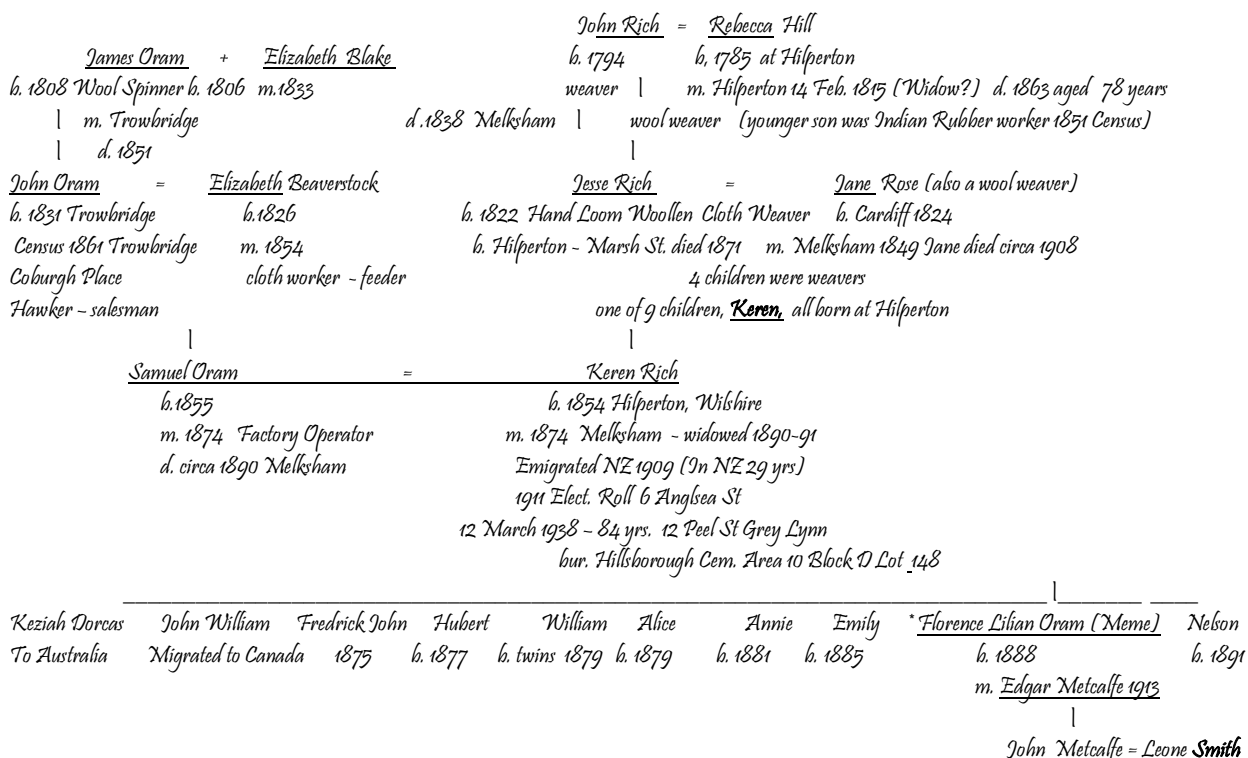 John Rich = Rebecca Hill
James Oram + Elizabeth Blake b. 1794 b, 1785 at Hilperton
b. 1808 Wool Spinner b. 1806 m.1833 weaver | m. Hilperton 14 Feb. 1815 (Widow?) d. 1863 aged 78 years
| m. Trowbridge d.1838 Melksham | wool weaver (younger son was Indian Rubber worker 1851 Census)
| d. 1851 |
John Oram = Elizabeth Beaverstock Jesse Rich = Jane Rose (also a wool weaver)
b. 1831 Trowbridge b.1826 b. 1822 Hand Loom Woollen Cloth Weaver b. Cardiff 1824
Census 1861 Trowbridge m. 1854 b. Hilperton - Marsh St. died 1871 m. Melksham 1849 Jane died circa 1908
Coburgh Place cloth worker - feeder 4 children were weavers
Hawker – salesman one of 9 children, Keren, all born at Hilperton
| |
Samuel Oram = Keren Rich
b.1855 b. 1854 Hilperton, Wilshire
m. 1874 Factory Operator m. 1874 Melksham - widowed 1890-91
d. circa 1890 Melksham Emigrated NZ 1909 (In NZ 29 yrs)
1911 Elect. Roll 6 Anglsea St
12 March 1938 – 84 yrs. 12 Peel St Grey Lynn
bur. Hillsborough Cem. Area 10 Block D Lot 148
|
Keziah Dorcas John William Fredrick John Hubert William Alice Annie Emily *Florence Lilian Oram (Meme) Nelson
To Australia Migrated to Canada 1875 b. 1877 b. twins 1879 b. 1879 b. 1881 b. 1885 b. 1888 b. 1891
m. Edgar Metcalfe 1913
|
John Metcalfe = Leone Smith